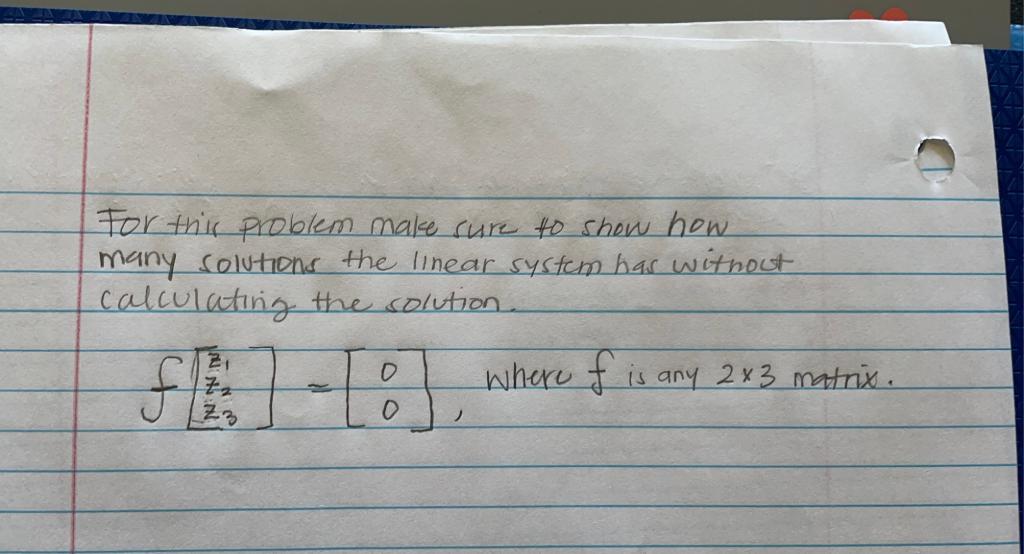 For this problem make sure to show how
many solutions the linear system has without
calculating the solution.
f [z₁ z₂ z₃] = [0 0], where f is any 2x3 matrix.